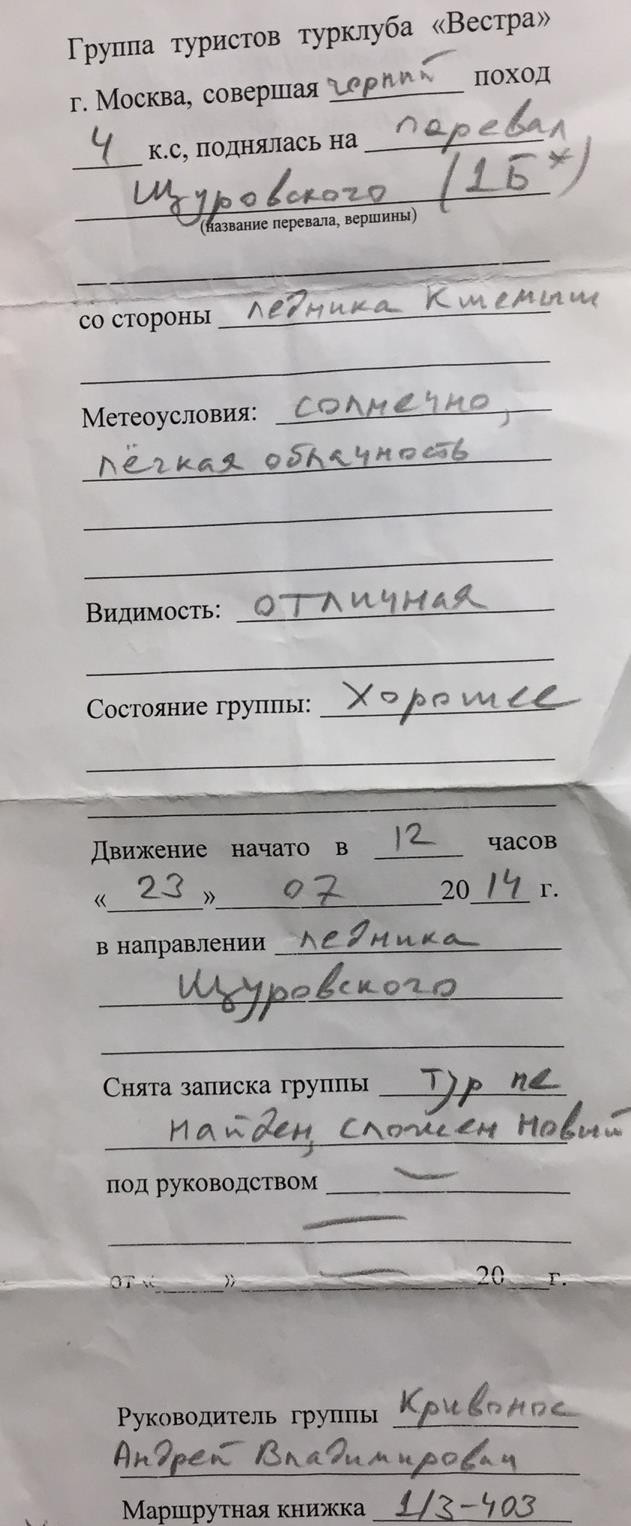 Группа туристов турклуба «Вестра»
г. Москва, совершая горный поход
4 к.с, поднялась на перевал
Щуровского (1Б*)
(название перевала, вершины)
со стороны ледника Кшемыш
Метеоусловия: солнечно,
лёгкая облачность
Видимость: отличная
Состояние группы: хорошее
Движение начато в 12 часов
«23» 07 2014 г.
в направлении ледника
Щуровского
Снята записка группы тур не
найден, сложен новый
под руководством —
—
от «____» — 20___г.
Руководитель группы Кривонос
Андрей Владимирович
Маршрутная книжка 1/3-403